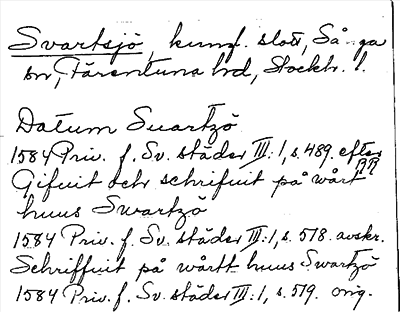 Svartsjö, kungl. slott, Sånga
sn, Färentuna hd, Stockh. l.
Datum Suartzö
1584 Priv. f. Sv. städer III:1, s. 489. efter RR
Gifuit och schrifuit på wårt
huus Swartzö
1584 Priv. f. Sv. städer III:1, s. 518. avskr.
Schriffuit på wårtt huus Swartzö
1584 Priv. f. Sv. städer III:1, s. 519. orig.